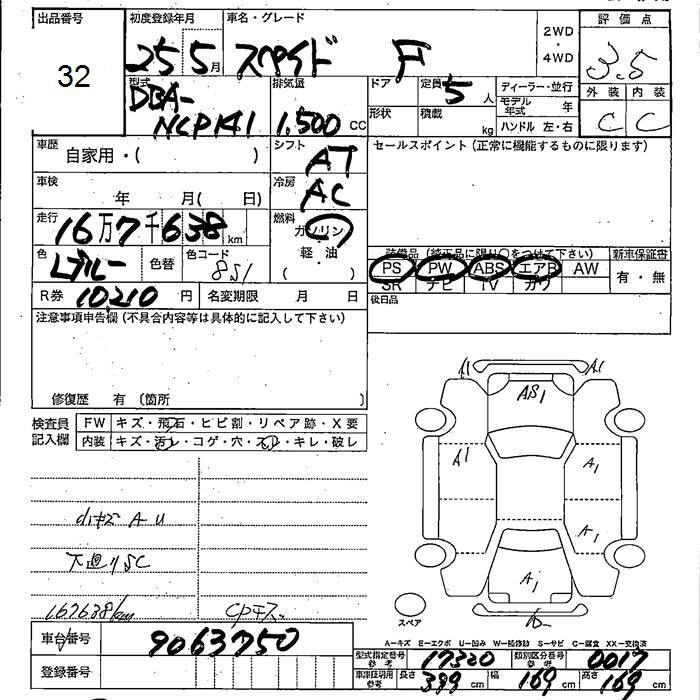 出品番号 初度登録年月 車名・グレード 2WD・4WD 評価点
32 25 5月 スペイド F 3.5
外装 内装
C C
型式 排気量 ドア 定員 5人 ディーラー・並行
DBA-NCP141 1.500 CC 形状 積載 kg モデル年式 年
ハンドル 左・右
車歴 自家用・( ) シフト AT セールスポイント(正常に機能するものに限ります)
車検 年 月( 日) 冷房 AC
走行 16万7千638km 燃料 ガソリン・軽・油
装備品(純正品に限り○をつけて下さい) 新車保証書
色 色替 色コード 8S1 PS PW ABS エアB AW 有・無
SR ナビ TV カワ
R券 10210円 名変期限 月 日 後日品
注意事項申告欄(不具合内容等は具体的に記入して下さい)
修復歴 有(箇所 )
検査員記入欄 FW キズ・飛石・ヒビ割・リペア跡・X要
内装 キズ・汚レ・コゲ・穴・スレ・キレ・破レ
小キズ A-U
下廻りSC
167638km
A1 A1
AS1
A1 A1
A1
A1
スペア
A-キズ E-エクボ U-凹み W-補修跡 S-サビ C-腐食 XX-交換済
車台番号 9063750 型式指定番号参考 17320 類別区分番号参考 0017
登録番号 車庫証明用参考 長さ 399cm 幅 169cm 高さ 169cm